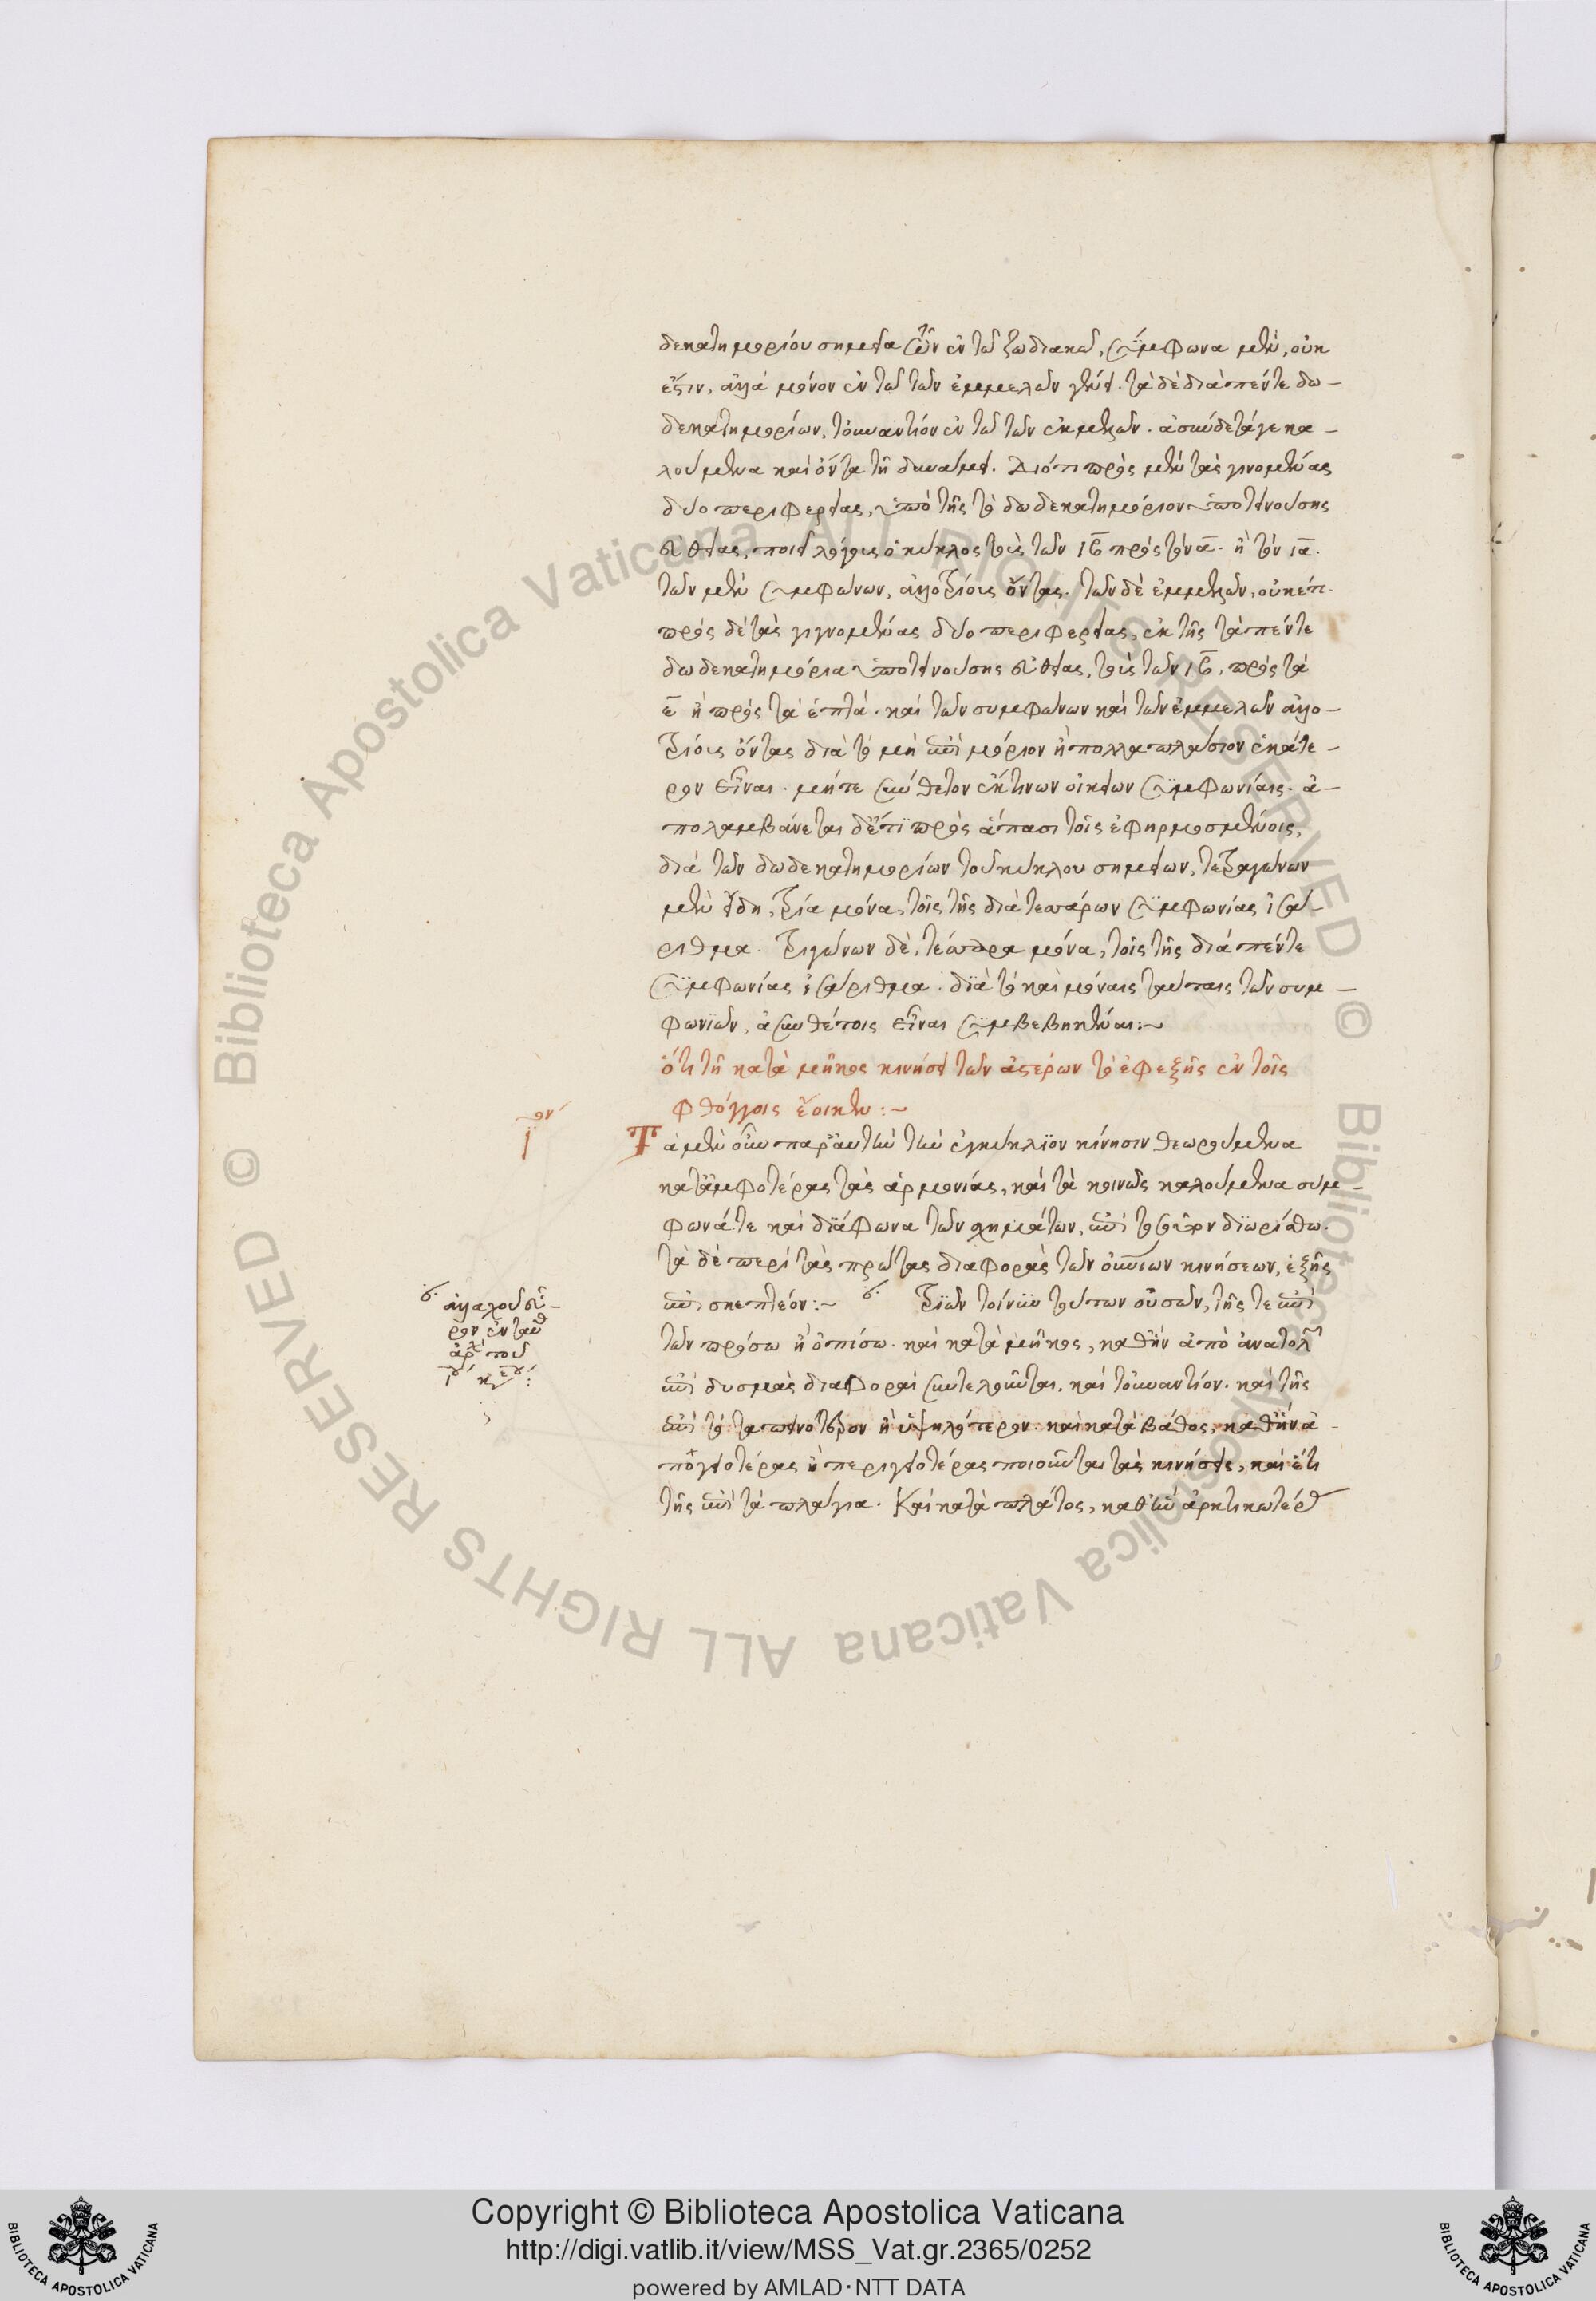 δεκατημορίου σημεῖα τῶν ἐν τῷ ζωδιακῷ, σύμφωνα μὲν, οὐκ
ἔστιν, ἀλλὰ μόνον ἐν τῷ τῶν ἐμμελῶν γένει. τὰ δὲ διὰ πέντε δω-
δεκατημορίων, τοὐναντίον ἐν τῷ τῶν ἐκμελῶν. ἀσύνδετά γε κα-
λούμενα καὶ ὄντα τῇ δυνάμει. Διότι πρὸς μὲν τὰς γινομένας
δύο περιφερείας, ὑπὸ τῆς τὸ δωδεκατημόριον ὑποτεινούσης
εὐθείας, ποιεῖ λόγους ὁ κύκλος τοὺς τῶν ιβ πρὸς τὸν α. ἢ τὸν ια.
τῶν μὲν συμφώνων, ἀλλοτρίοις ὄντας. τῶν δὲ ἐμμελῶν, οὐκέτι.
πρὸς δὲ τὰς γιγνομένας δύο περιφερείας, ἐκ τῆς τὰ πέντε
δωδεκατημόρια ὑποτεινούσης εὐθείας, τοὺς τῶν ιβ, πρὸς τὰ
ε ἢ πρὸς τὰ ἑπτά. καὶ τῶν συμφώνων καὶ τῶν ἐμμελῶν ἀλλο-
τρίους ὄντας διὰ τὸ μὴ ἐπὶ μόριον ἢ πολλαπλάσιον ἑκάτε-
ρον εἶναι. μήτε σύνθετον ἔκ τινων οἰκείων συμφωνίαις. ἀ-
πολαμβάνεται δ' ἔτι πρὸς ἅπασι τοῖς ἐφηρμοσμένοις,
διὰ τῶν δωδεκατημορίων τοῦ κύκλου σημείων, τετραγώνων
μὲν εἴδη, τρία μόνα, τοῖς τῆς διὰ τεσσάρων συμφωνίας ἰσά-
ριθμα. τριγώνων δὲ, τέσσαρα μόνα, τοῖς τῆς διὰ πέντε
συμφωνίας ἰσάριθμα. διὰ τὸ καὶ μόναις ταύταις τῶν συμ-
φωνιῶν, ἀσυνθέτοις εἶναι συμβεβηκέναι:~
ὅτι τῇ κατὰ μῆκος κινήσει τῶν ἀστέρων τὸ ἐφεξῆς ἐν τοῖς
φθόγγοις ἔοικεν:~
ι ον
Τὰ μὲν οὖν παρ' αὐτὴν τὴν ἐγκύκλιον κίνησιν θεωρούμενα
κατ' ἀμφοτέρας τὰς ἁρμονίας, καὶ τὰ κοινῶς καλούμενα συμ-
φωνά τε καὶ διάφωνα τῶν σχημάτων, ἐπὶ τοσοῦτον διωρίσθω.
τὰ δὲ περὶ τὰς πρώτας διαφορὰς τῶν οὐρανίων κινήσεων, ἑξῆς
ἐπισκεπτέον:~ τριῶν τοίνυν τούτων οὐσῶν, τῆς τε ἐπὶ
τῶν πρόσω ἢ ὀπίσω. καὶ κατὰ μῆκος, καθ' ἣν ἀπὸ ἀνατολῶν
ἐπὶ δυσμὰς διαφοραὶ συντελοῦνται, καὶ τοὐναντίον. καὶ τῆς
ἐπὶ τὸ ταπεινότερον ἢ ὑψηλότερον. καὶ κατὰ βάθος, καθ' ἣν ἀ-
πογειοτέρας ἢ περιγειοτέρας ποιοῦνται τὰς κινήσεις, καὶ ἔτι
τῆς ἐπὶ τὰ πλάγια. Καὶ κατὰ πλάτος, καθ' ἣν ἀρκτικωτέρ
ἀλλαχοῦ εὗ-
ρον ἐνταῦθ
ἀρχ τοῦ
Copyright © Biblioteca Apostolica Vaticana
http://digi.vatlib.it/view/MSS_Vat.gr.2365/0252
powered by AMLAD·NTT DATA